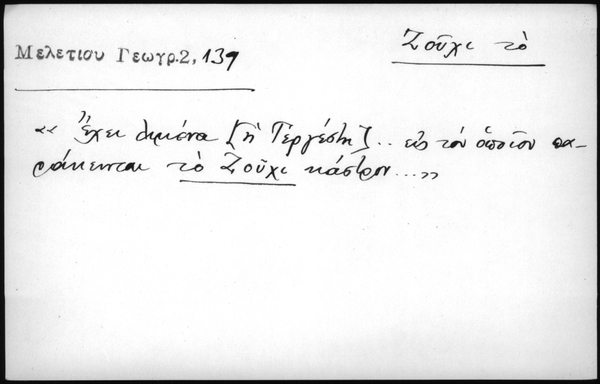 Ζοῦχι τὸ
Μελετίου Γεωγρ.2, 139
« Ἔχει λιμένα [ἡ Τεργέστη].. εἰς τὸν ὁποῖον πα-
ράκειται τὸ Ζοῦχι κάστρον...»